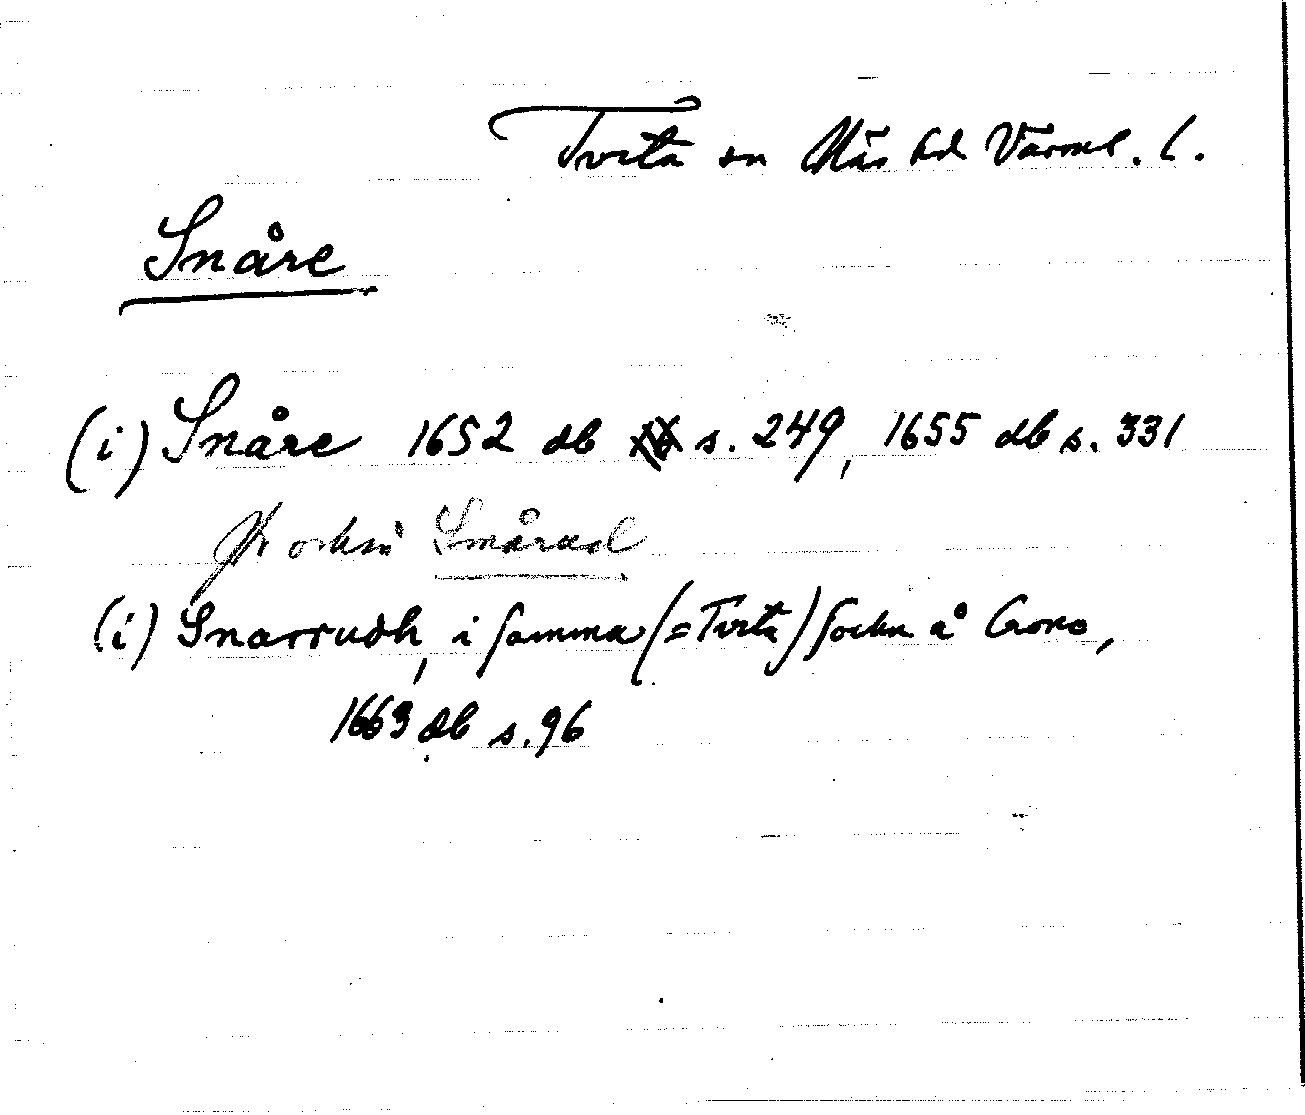 Tveta sn Näs hd Värml. l.
Snåre
(i) Snåre 1652 db s. 249, 1655 db s. 331
Jfr också Smårud
(i) Snarrudh, i samma (= Tveta) sockn å Crono,
1669 db s. 96